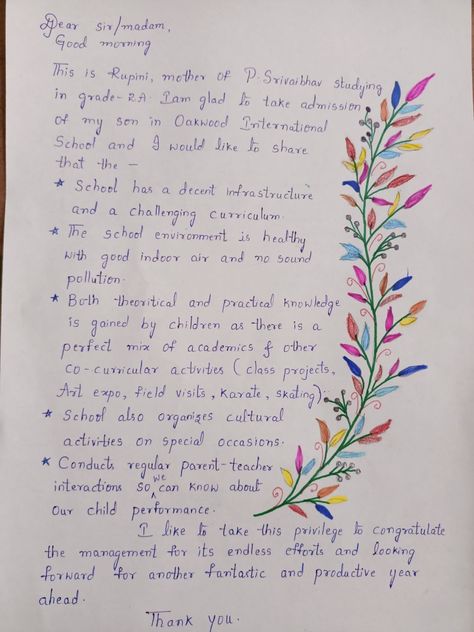 Dear sir/madam,
Good morning
This is Rupini, mother of P. Srivaibhav studying
in grade-2A. I am glad to take admission
of my son in Oakwood International
School and I would like to share
that the -
★ School has a decent infrastructure
and a challenging curriculum.
★ The school environment is healthy
with good indoor air and no sound
pollution.
★ Both theoritical and practical knowledge
is gained by children as there is a
perfect mix of academics & other
co-curricular activities (class projects,
Art expo, field visits, karate, skating).
★ School also organizes cultural
activities on special occasions.
★ Conducts regular parent-teacher
interactions so we can know about
our child performance.
I like to take this privilege to congratulate
the management for its endless efforts and looking
forward for another fantastic and productive year
ahead.
Thank you.